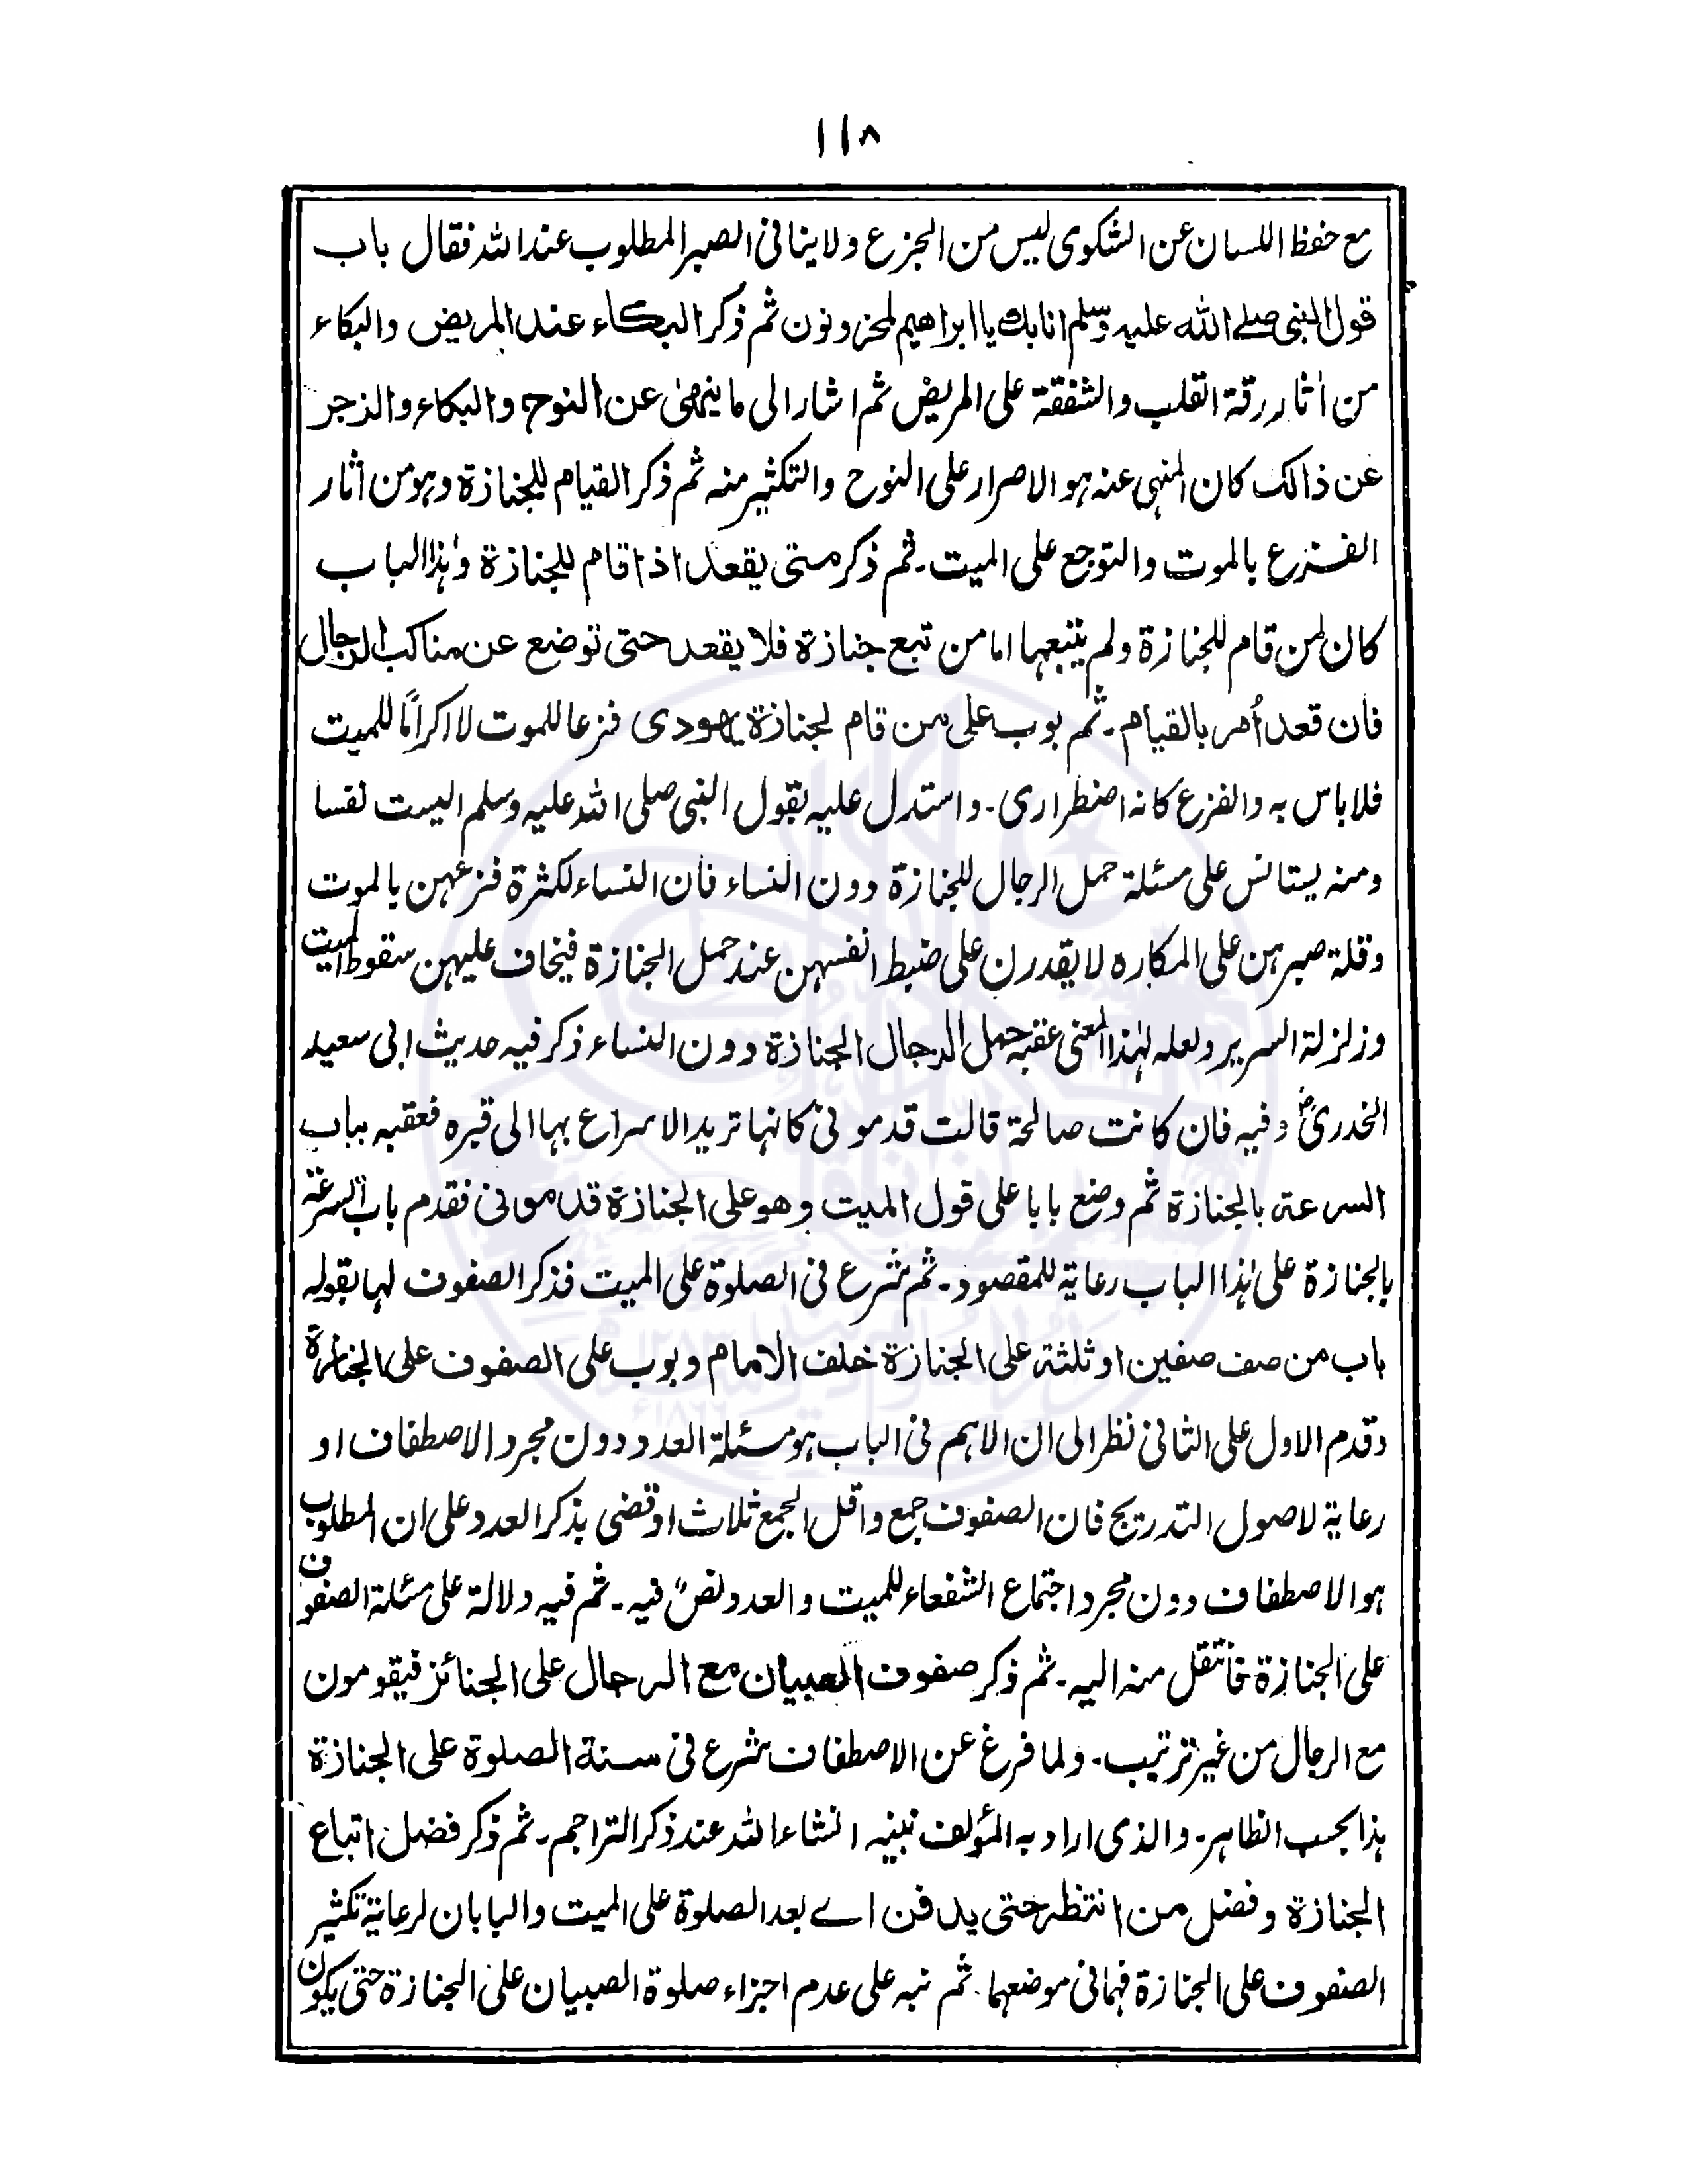 ١١٨
مع حفظ اللسان عن الشكوى ليس من الجزع ولا ينافى الصبر المطلوب عند الله فقال باب
قول النبى صلے الله عليه وسلم انا بك يا ابراهيم لمحزونون ثم ذكر البكاء عند المريض والبكاء
من أثار رقة القلب والشفقة على المريض ثم اشار الى ما ينهىٰ عن النوح والبكاء والزجر
عن ذالك كان المنهى عنه هو الاصرار على النوح والتكثير منه ثم ذكر القيام للجنازة وهو من أثار
الفزع بالموت والتوجع على الميت۔ ثم ذكر متى يقعد اذا قام للجنازة وهٰذا الباب
كان لمن قام للجنازة ولم يتبعها اما من تبع جنازة فلا يقعد حتى توضع عن مناكب الرجال
فان قعد أُمر بالقيام۔ ثم بوب على من قام لجنازة يهودى فزعا للموت لا اكرامًا للميت
فلا باس به والفزع كانه اضطرارى۔ واستدل عليه بقول النبى صلى الله عليه وسلم اليست نفسا
ومنه يستانس على مسئلة حمل الرجال للجنازة دون النساء فان النساء لكثرة فزعهن بالموت
وقلة صبرهن على المكاره لا يقدرن على ضبط انفسهن عند حمل الجنازة فيخاف عليهن سقوط الميت
وزلزلة السرير ولعله لهٰذا المعنى عقبه حمل الرجال الجنازة دون النساء ذكر فيه حديث ابى سعيد
الخدرىؓ وفيه فان كانت صالحة قالت قدمونى كانها تريد الاسراع بها الى قبره فعقبه بباب
السرعة بالجنازة ثم وضع بابا على قول الميت وهو على الجنازة قدمونى فقدم باب السرعة
بالجنازة على هٰذا الباب رعاية للمقصود۔ ثم شرع فى الصلوة على الميت فذكر الصفوف لها بقوله
باب من صف صفين او ثلثة على الجنازة خلف الامام وبوب على الصفوف على الجنازة
وقدم الاول على الثانى نظرا الى ان الاهم فى الباب هو مسئلة العدد دون مجرد الاصطفاف او
رعاية لاصول التدريج فان الصفوف جمع واقل الجمع ثلاث او قضى بذكر العدد على ان المطلوب
هو الاصطفاف دون مجرد اجتماع الشفعاء للميت والعدد نصٌ فيه۔ ثم فيه دلالة على مسئلة الصفوف
على الجنازة فانتقل منه اليه۔ ثم ذكر صفوف الصبيان مع الرجال على الجنائز فيقومون
مع الرجال من غير ترتيب۔ ولما فرغ عن الاصطفاف شرع فى سنة الصلوة على الجنازة
هذا بحسب الظاهر۔ والذى اراد به المؤلف نبينه انشاء الله عند ذكر التراجم۔ ثم ذكر فضل اتباع
الجنازة وفضل من انتظر حتى يدفن اے بعد الصلوة على الميت والبابان لرعاية تكثير
الصفوف على الجنازة فهما فى موضعهما۔ ثم نبه على عدم اجزاء صلوة الصبيان على الجنازة حتى يكون